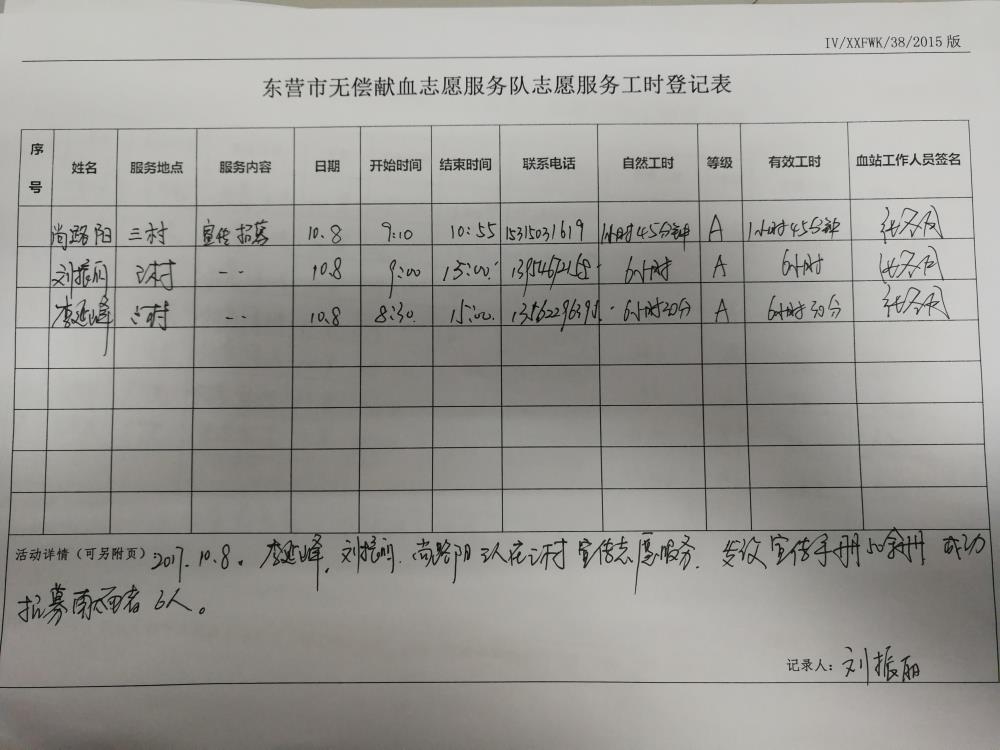 IV/XXFWK/38/2015 版
东营市无偿献血志愿服务队志愿服务工时登记表
序号 姓名 服务地点 服务内容 日期 开始时间 结束时间 联系电话 自然工时 等级 有效工时 血站工作人员签名
尚路阳 三村 宣传招募 10.8 9:10 10:55 15315031619 1小时45分钟 A 1小时45分钟
刘振丽 三村 -- 10.8 9:00 15:00 6小时 A 6小时
李延峰 三村 -- 10.8 8:30 15:00 6小时30分 A 6小时30分
活动详情（可另附页）2017.10.8。李延峰,刘振丽.尚路阳三人在三村宣传志愿服务.发放宣传手册50余册 成功
招募献血者6人。
记录人：刘振丽